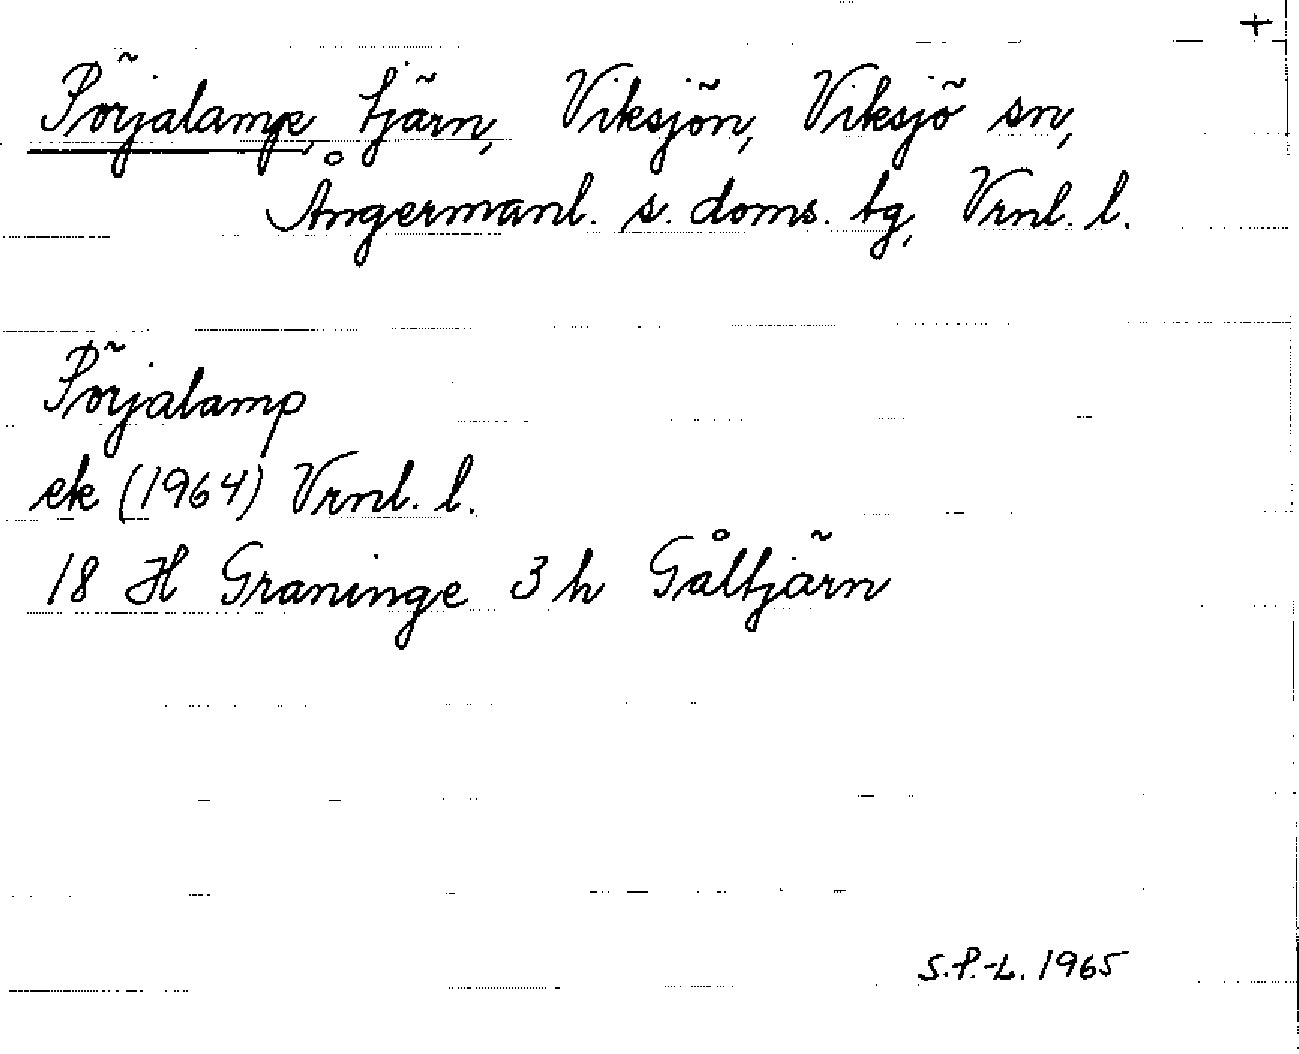 +
Pörjalamp, tjärn, Viksjön, Viksjö sn,
Ångermanl. s. doms. tg, Vrnl. l.
Pörjalamp
ek (1964) Vrnl. l.
18 H Graninge 3 h Gåltjärn
S.P.-L. 1965